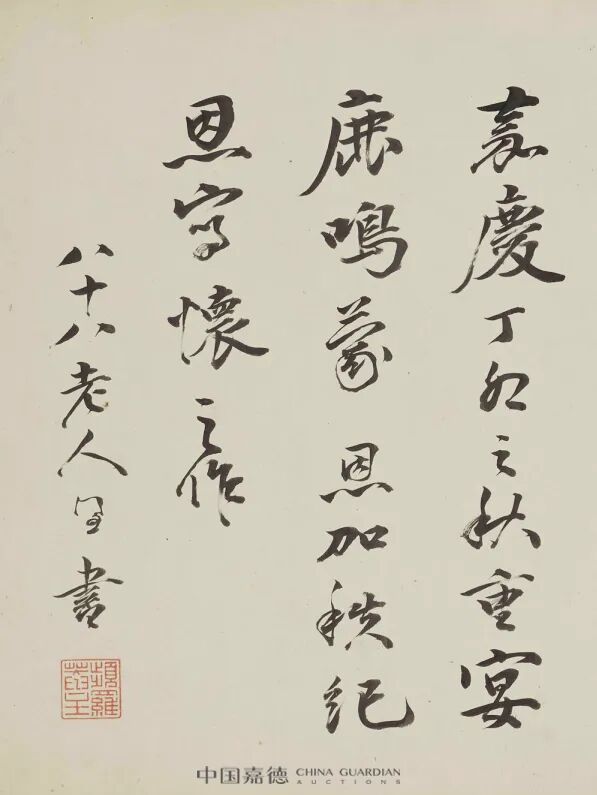 嘉慶丁卯之秋重宴
鹿鳴蒙 恩加秩紀
恩寫懷之作
八十八老人同書
頻羅菴主
中国嘉德 CHINA GUARDIAN AUCTIONS